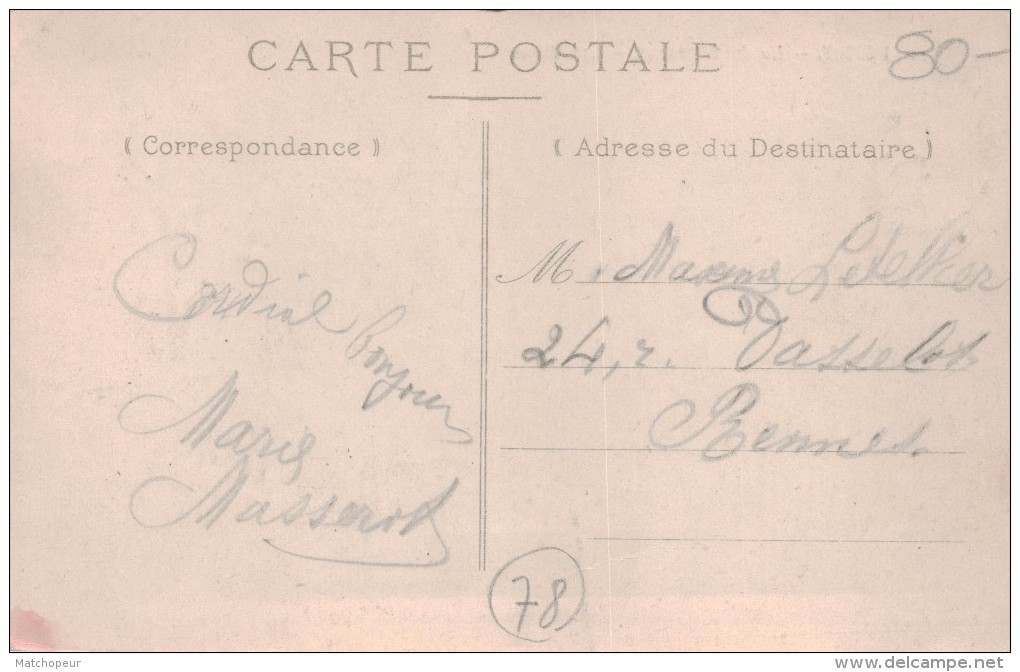 CARTE POSTALE
80-
( Correspondance )
( Adresse du Destinataire )
Cordial bonjour
Marie
Masserot
M. Maxime
24, r. Vasselot
Rennes.
78
Matchopeur
www.delcampe.net